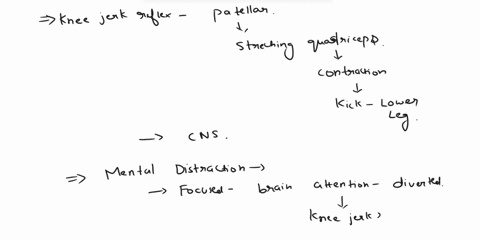 ⇒ Knee jerk reflex - patellar.
↓
Streching quadriceps.
↓
contraction
↓
Kick - Lower
Leg.
→ CNS.
⇒ Mental Distraction →
→ Focused - brain attention - diverted.
↓
Knee jerk,